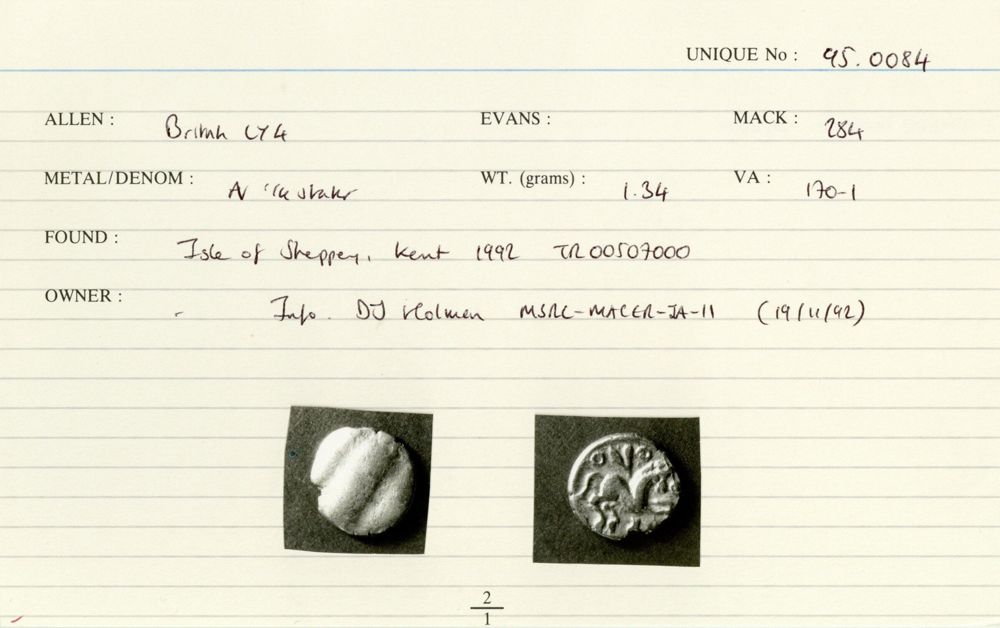 UNIQUE No : 95.0084
ALLEN : British LY4 EVANS : MACK : 284
METAL/DENOM : WT. (grams) : 1.34 VA : 170-1
FOUND : Isle of Sheppey, Kent 1992 TR00507000
OWNER : - Info. DJ Holman MSRC-MACER-JA-11 (19/11/92)
2
1